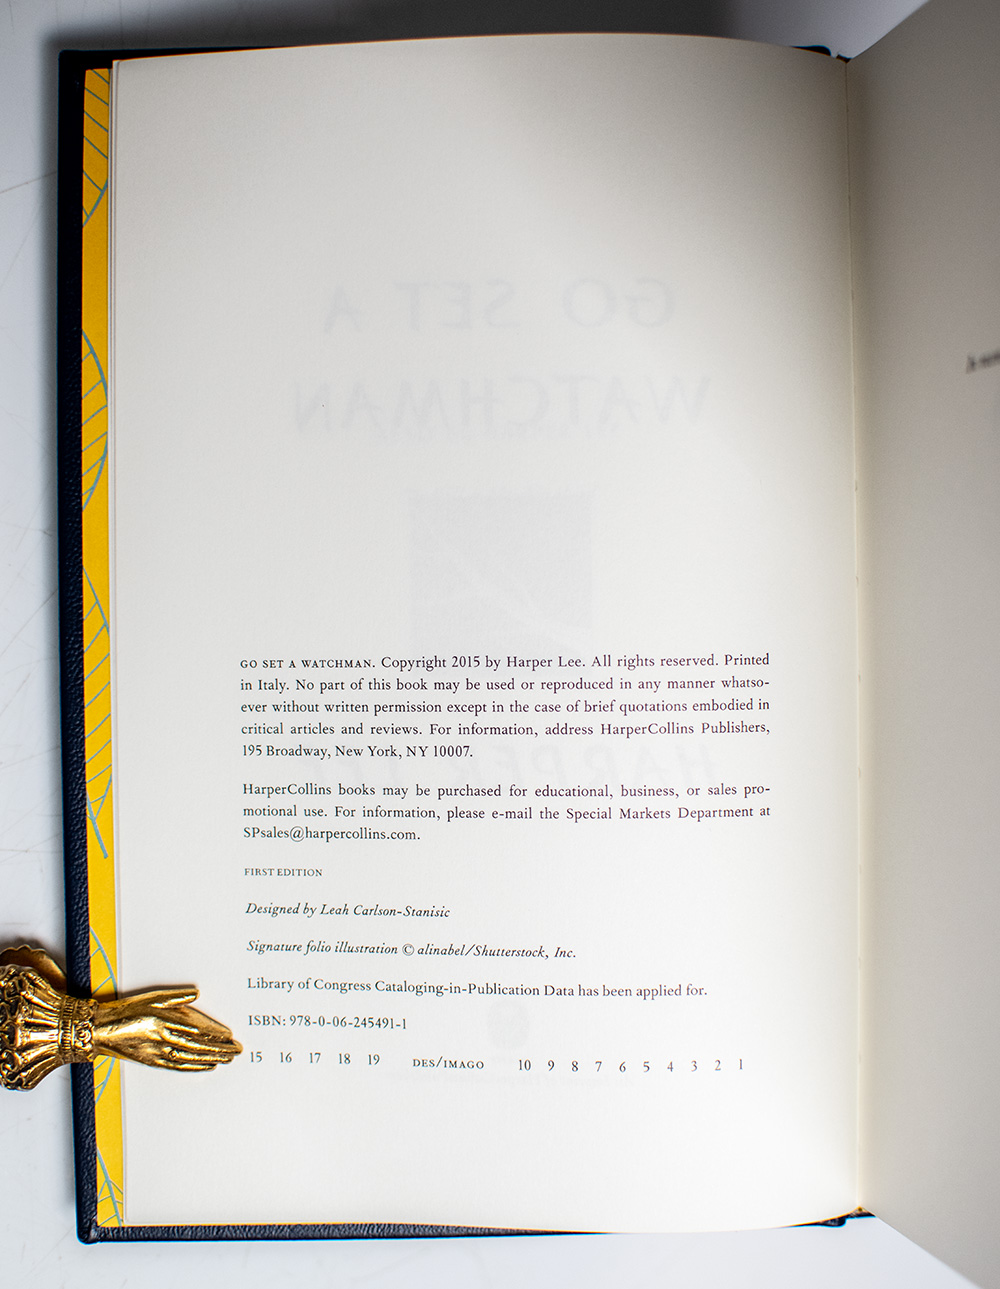 GO SET A WATCHMAN. Copyright 2015 by Harper Lee. All rights reserved. Printed
in Italy. No part of this book may be used or reproduced in any manner whatso-
ever without written permission except in the case of brief quotations embodied in
critical articles and reviews. For information, address HarperCollins Publishers,
195 Broadway, New York, NY 10007.
HarperCollins books may be purchased for educational, business, or sales pro-
motional use. For information, please e-mail the Special Markets Department at
SPsales@harpercollins.com.
FIRST EDITION
Designed by Leah Carlson-Stanisic
Signature folio illustration © alinabel/Shutterstock, Inc.
Library of Congress Cataloging-in-Publication Data has been applied for.
ISBN: 978-0-06-245491-1
15 16 17 18 19 DES/IMAGO 10 9 8 7 6 5 4 3 2 1